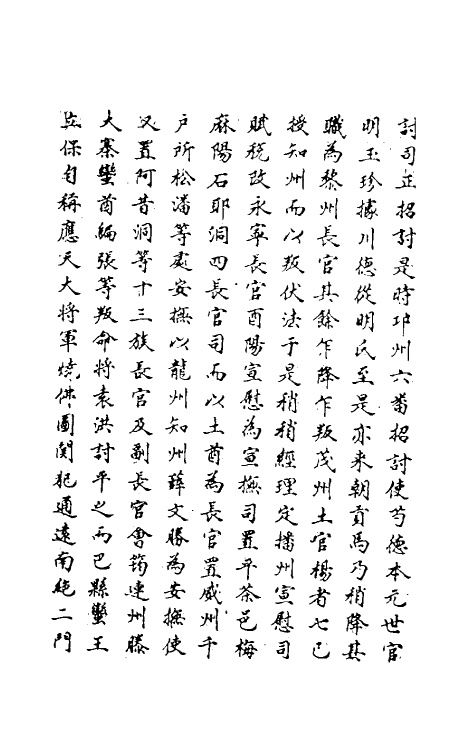 討司正招討是時邛州六番招討使芍德本元世官
明玉珍據川德從明氏至是亦来朝貢馬乃稍降其
職為黎州長官其餘乍降乍叛茂州土官楊者七已
授知州而以叛伏法于是稍稍經理定播州宣慰司
賦稅改永寧長官酉陽宣慰為宣撫司置平茶邑梅
麻陽石耶洞四長官司而以土酋為長官置威州千
户所松潘等處安撫以龍州知州薛文勝為安撫使
又置阿昔洞等十三族長官及副長官會筠連州滕
大寨蠻酋編張等叛命將袁洪討平之而巴縣蠻王
立保自稱應天大將軍燒佛圖関犯通遠南紀二門